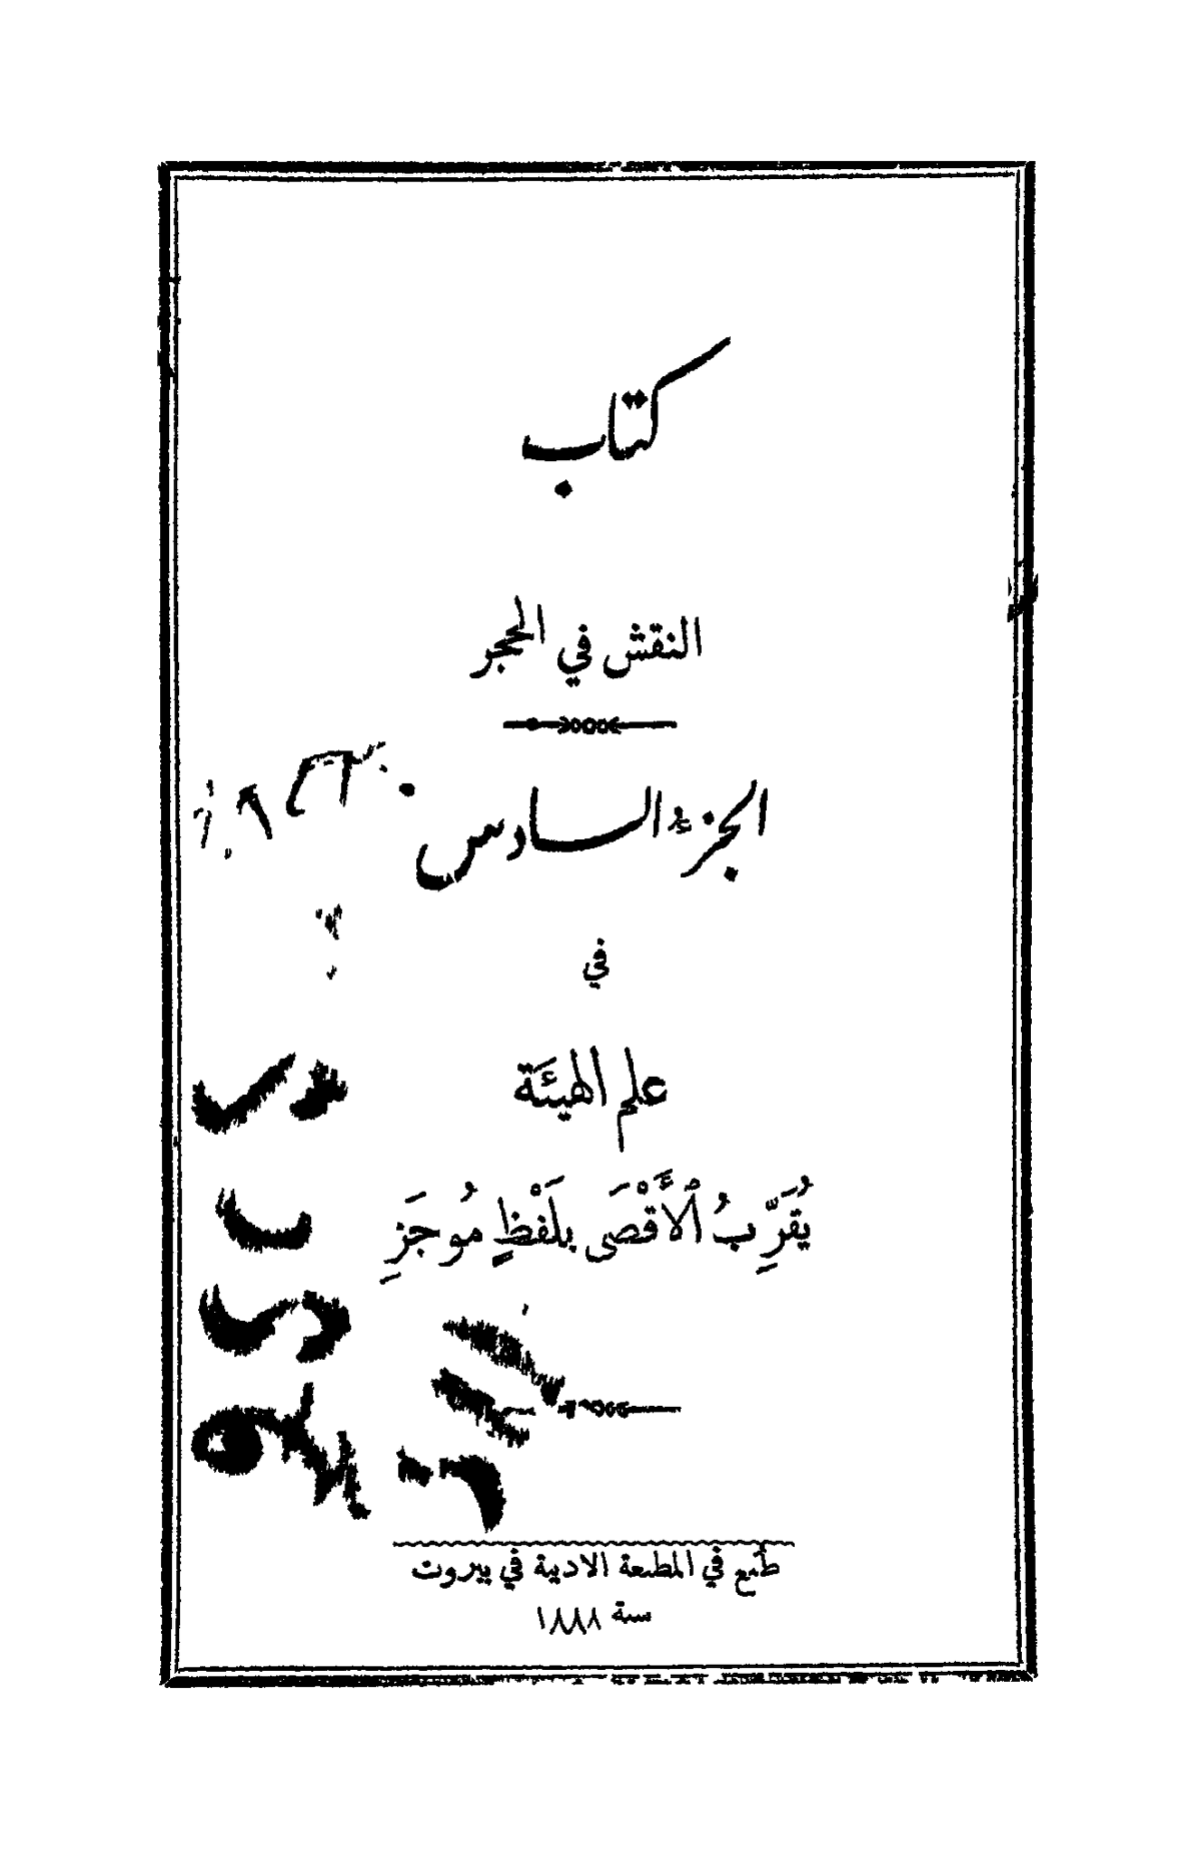 كتاب
النقش في الحجر
الجزء السادس
في
علم الهيئة
يُقَرِّبُ ٱلْأَقْصَى بِلَفْظٍ مُوجَزِ
طُبع في المطبعة الادبية في بيروت
سنة ١٨٨٨